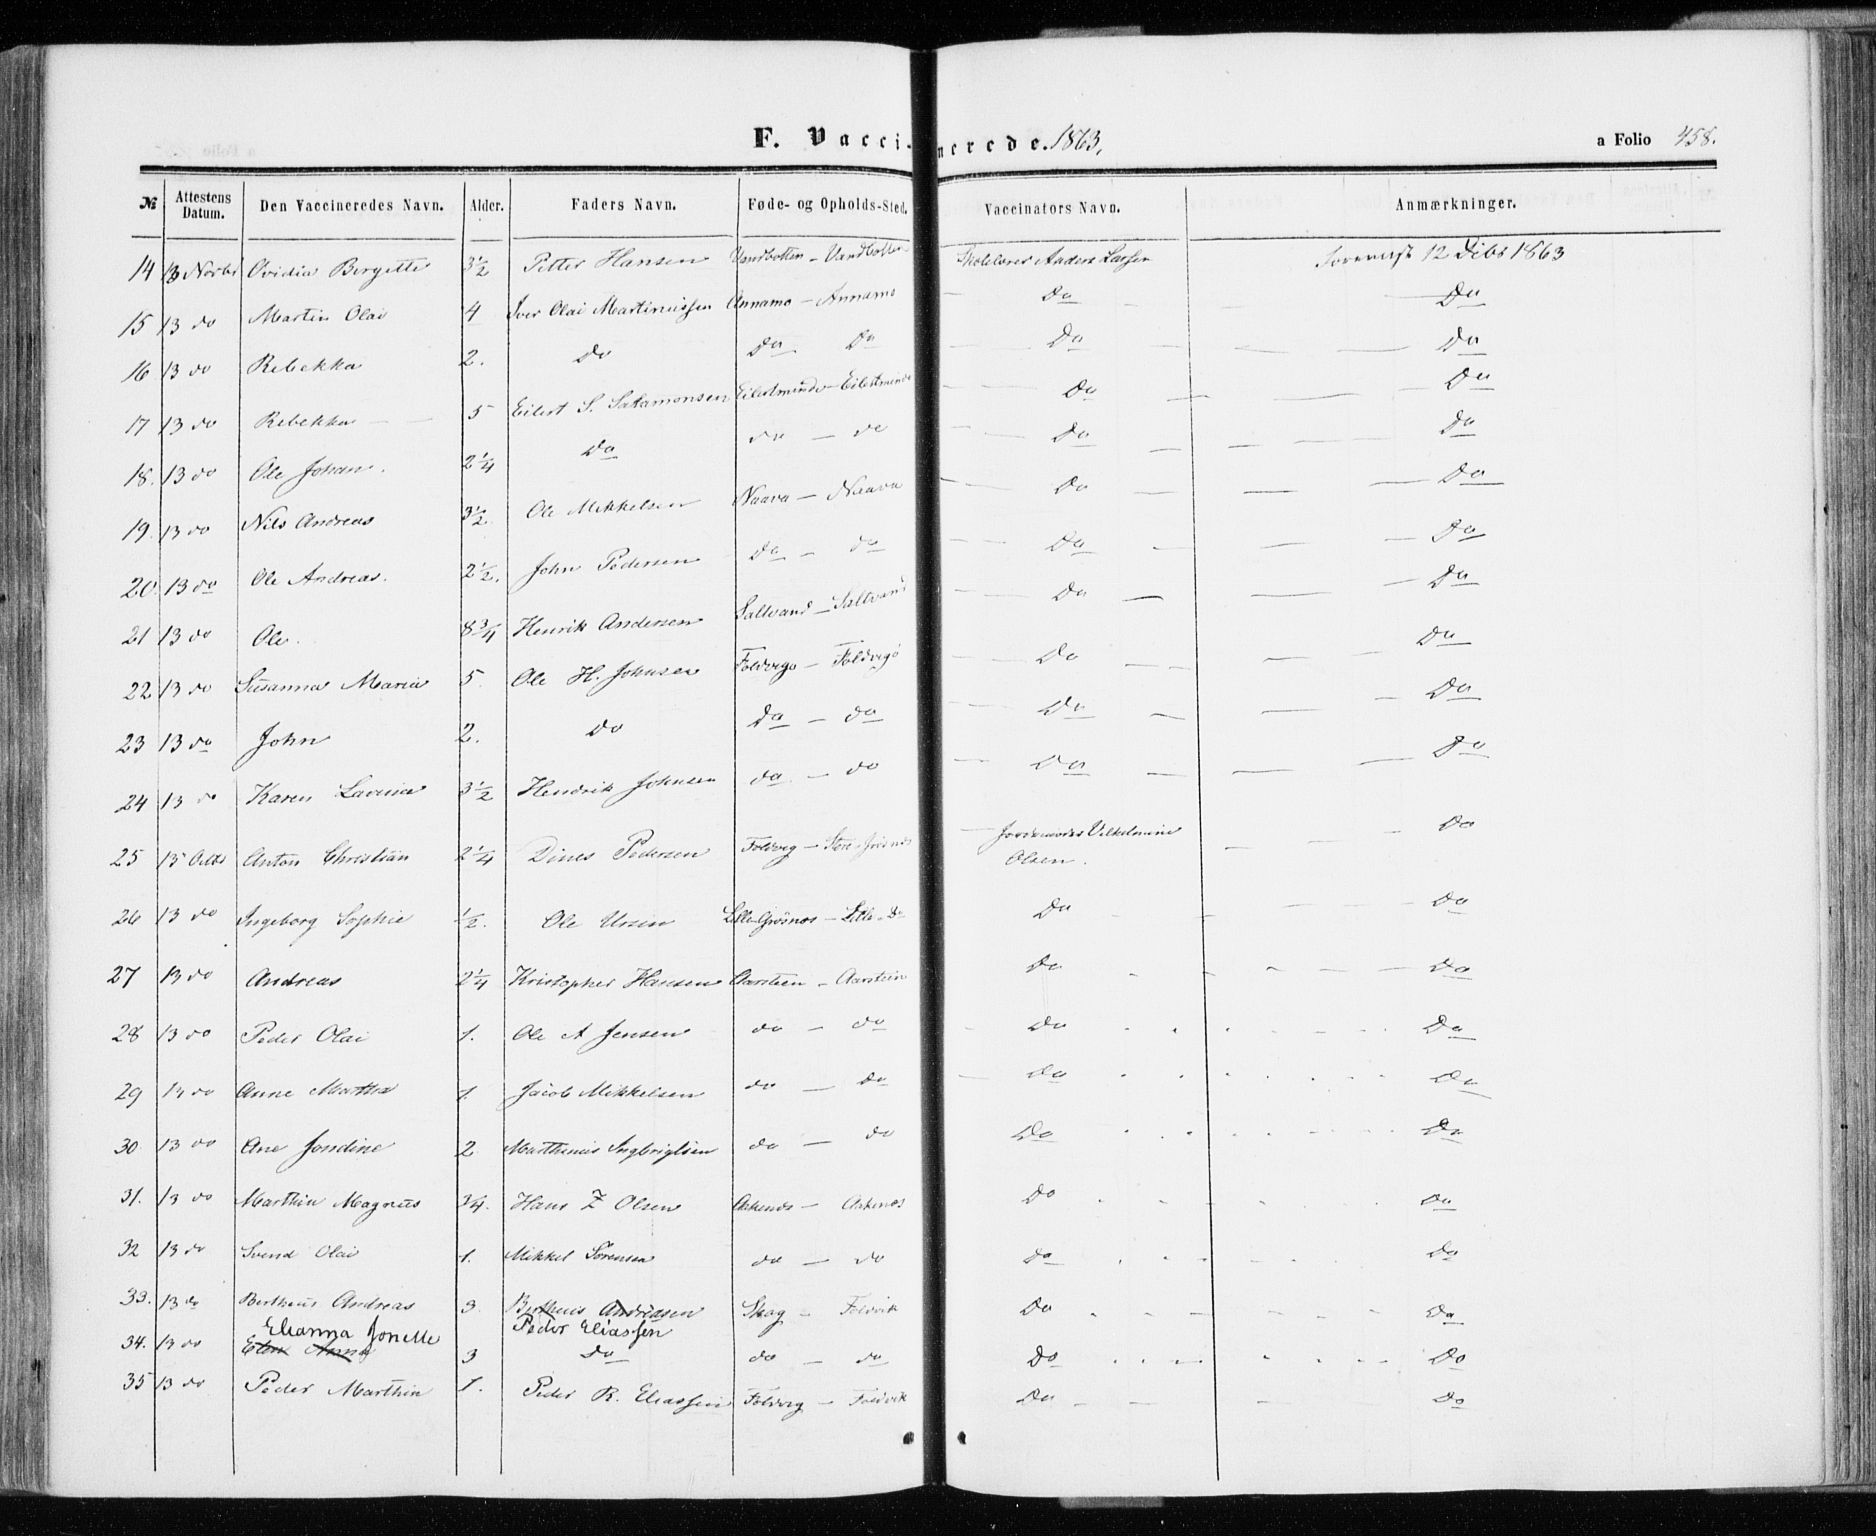 F. Vaccinerede. 1863.
a Folio 458.
№ | Attestens Datum. | Den Vaccineredes Navn. | Alder. | Faders Navn. | Føde- og Opholds-Sted. | Vaccinators Navn. | Anmærkninger.
14 | 13 Novbr | Ovidia Bergette | 3½ | Petter Hansen | Vandbotten – Vandbotten | Skolelærer Anders Larsen | 12 Debr 1863
15 | 13 do | Martin Olai | 4 | Iver Olai Martinussen | Annamo – Annamo | Do | Do
16 | 13 do | Rebekka | 2. | Do | Do Do | Do | Do
17 | 13 do | Rebekka | 5 | Eilert S. Salamonsen | Eilertminde – Eilertminde | Do | Do
18. | 13 do | Ole Johan. | 2¼ | Do | do – do | Do | Do
19. | 13 do | Nils Andreas | 3½. | Ole Mikkelsen | Naava – Naava | Do | Do
20. | 13 do | Ole Andreas. | 2½. | John Pedersen | Do – do | Do | Do
21 | 13 do | Ole. | 8¾ | Henrik Andersen | Saltvand – Saltvand | Do | Do
22 | 13 do | Susanna Maria | 5. | Ole H. Johnsen | Foldvigo – Foldvigo | Do | Do
23 | 13 do | John | 2. | Do | Do – do | Do | Do
24 | 13 do | Karen Lavina | 3½ | Hendrik Johnsen | do – do | Do | Do
25 | 13 | Anton Christian | 2¼ | Dines Pedersen | Foldvig – Store-Grøsnes | Jordemoder Vilhelmine Olsen. | Do
26 | 13 do | Ingeborg Sophie | ½. | Ole Ursin | Lille-Grøsnes – Lille-Do | Do | Do
27 | 13 do | Andreas | 2¼ | Kristopher Hansen | Aarsteen – Aarstein | Do | Do
28 | 13 do | Peder Olai | 1. | Ole A Jensen | do – do | Do | Do
29 | 13 do | Anne Martha | 1. | Jacob Mikkelsen | do – Do | Do | Do
30 | 13 do | Ane Jondine | 2 | Marthinus Ingbrigtsen | do – do | Do | Do
31. | 13 do | Marthin Magnus | 3/4. | Hans Z Olsen | Aakenes – Aakenes | Do | Do
32 | 13 do | Svend Olai | 1. | Mikkel Sørensen | do – do | Do | Do
33. | 13 do | Bertheus Andreas | 3. | Bertheus Andreasen Peder Eliassen | Skog – Foldvik | Do | Do
34. | 13 do | Elianna Jonette Elen Anna | 3 | Do | do – do | Do | Do
35 | 13 do | Peder Marthin | 1. | Peder R. Eliassen | Foldvig – Foldvik | Do | Do